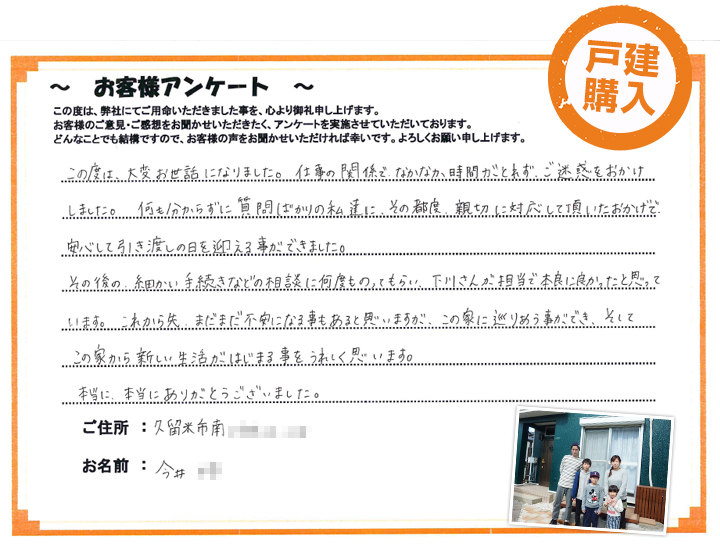 戸建
購入
～ お客様アンケート ～
この度は、弊社にてご用命いただきました事を、心より御礼申し上げます。
お客様のご意見・ご感想をお聞かせいただきたく、アンケートを実施させていただいております。
どんなことでも結構ですので、お客様の声をお聞かせいただければ幸いです。よろしくお願い申し上げます。
この度は、大変お世話になりました。 仕事の関係で、なかなか、時間がとれず、ご迷惑をおかけ
しました。 何も分からずに質問ばかりの私達に、その都度、親切に対応して頂いたおかげで
安心して引き渡しの日を迎える事ができました。
その後の、細かい手続きなどの相談に何度ものってもらい、下川さんが担当で本良に良かったと思って
います。 これから先、まだまだ不安になる事もあると思いますが、この家に巡りあう事ができ、そして
この家から新しい生活がはじまる事をうれしく思います。
本当に、本当にありがとうございました。
ご住所 ： 久留米市南
お名前 ： 今井